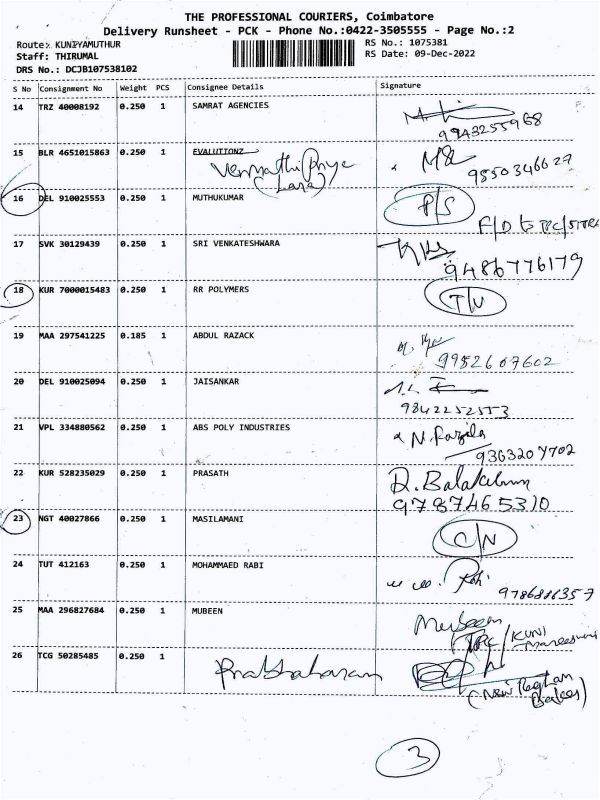 THE PROFESSIONAL COURIERS, Coimbatore
Delivery Runsheet - PCK - Phone No.:0422-3505555 - Page No.:2
Route: KUNIYAMUTHUR RS No.: 1075381
Staff: THIRUMAL RS Date: 09-Dec-2022
DRS No.: DCJB107538102
S No Consignment No Weight PCS Consignee Details Signature
14 TRZ 40008192 0.250 1 SAMRAT AGENCIES
9943255968
15 BLR 4651015863 0.250 1 EVALUTIONZ
9850346627
16 DEL 910025553 0.250 1 MUTHUKUMAR P/S
F/D to
17 SVK 30129439 0.250 1 SRI VENKATESHWARA
9486776179
18 KUR 7000015483 0.250 1 RR POLYMERS
19 MAA 297541225 0.185 1 ABDUL RAZACK
9952607602
20 DEL 910025094 0.250 1 JAISANKAR
9842252553
21 VPL 334880562 0.250 1 ABS POLY INDUSTRIES N. Fazila
9363207702
22 KUR 528235029 0.250 1 PRASATH
9787465310
23 NGT 40027866 0.250 1 MASILAMANI C/N
24 TUT 412163 0.250 1 MOHAMMAED RABI
25 MAA 296827684 0.250 1 MUBEEN Mubeen
KUNI
26 TCG 50285485 0.250 1 Prabhaharan
3